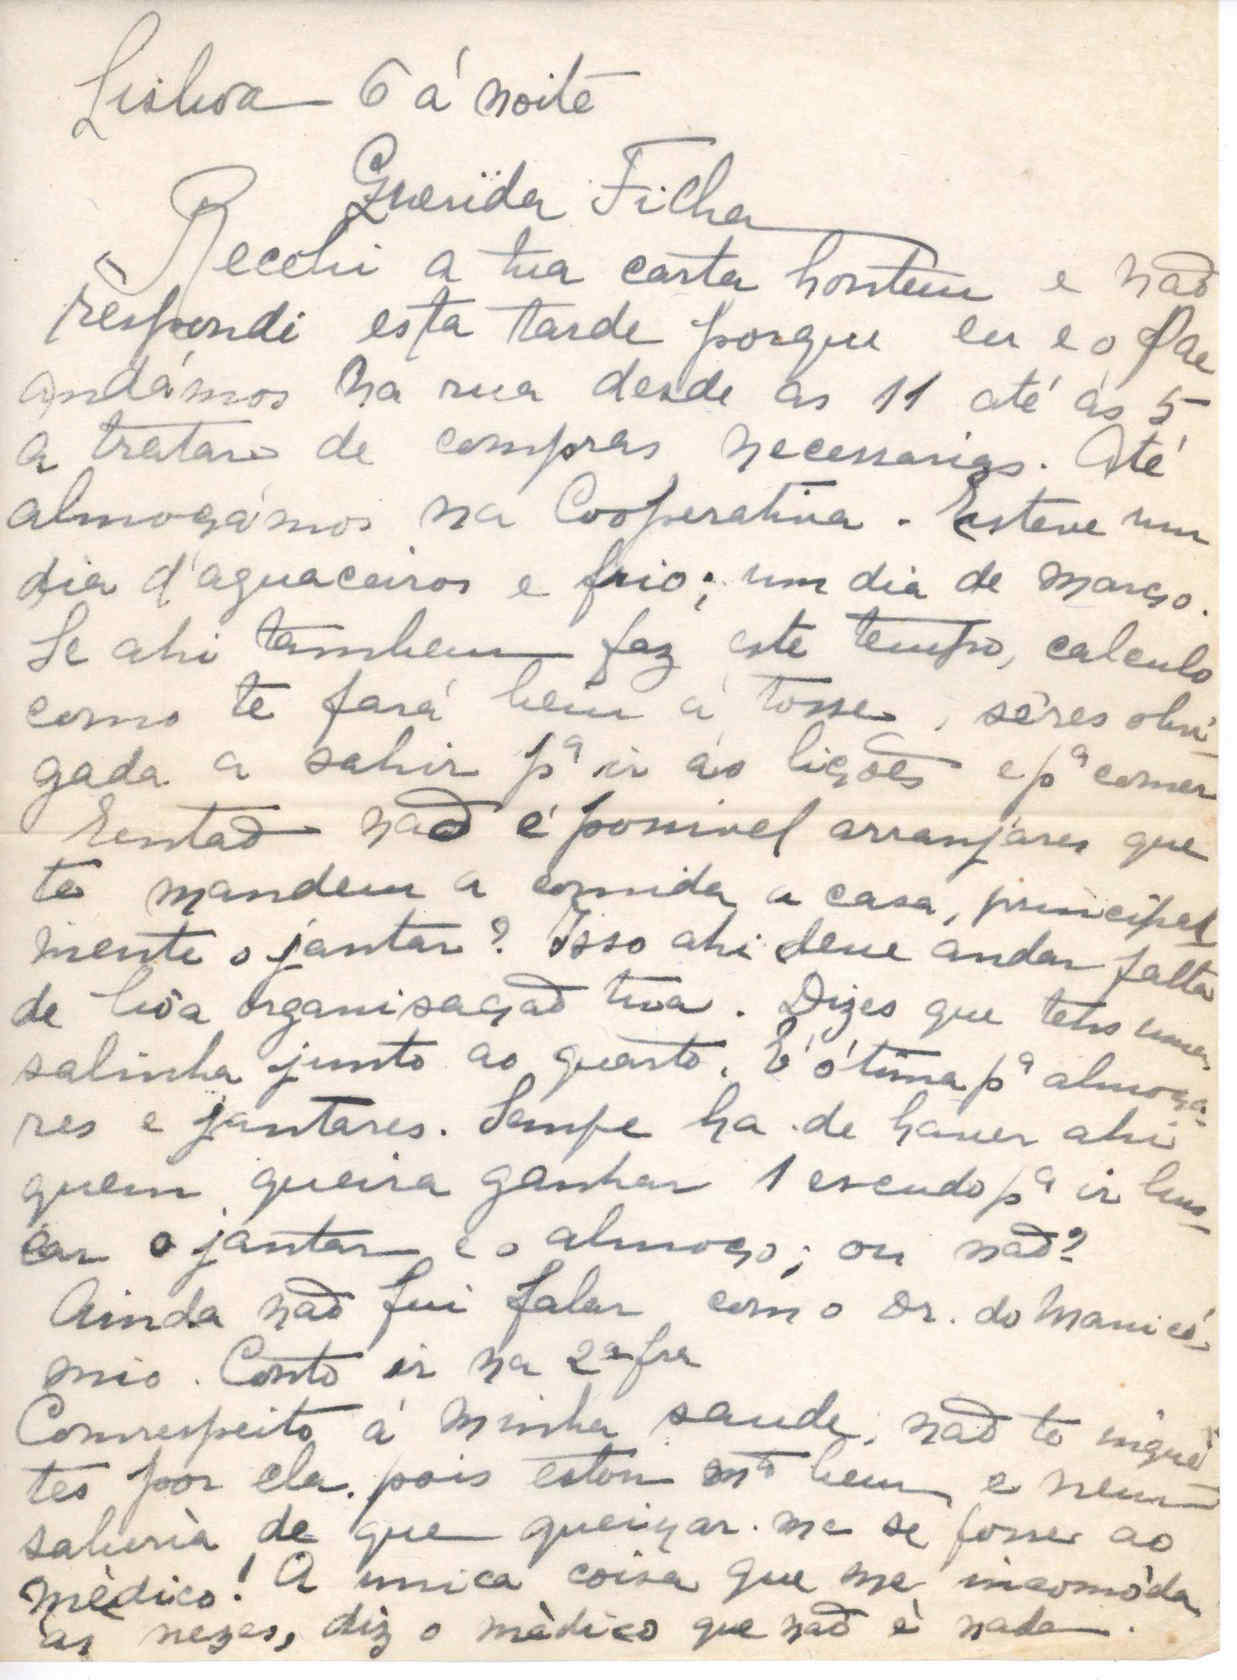 Lisboa 6 á noite
Querida Filha
Recebi a tua carta hontem e não
respondi esta tarde porque eu e o Pae
andámos na rua desde as 11 até ás 5
a tratar de compras necessarias. Até
almoçámos na Cooperativa. Esteve um
dia d'aguaceiros e frio; um dia de março.
Se ahi tambem faz este tempo, calculo
como te fará bem á tosse, sêres obri-
gada a sahir pª ir ás lições e pª comer
Entaõ naõ é possivel arranjares que
te mandem a comida a casa, principal-
mente o jantar? Isso ahi deve andar falta
de bôa organisaçaõ tua. Dizes que tens uma
salinha junto ao quarto. É ótima pª almoça-
res e jantares. Sempe ha de haver ahi
quem queira ganhar 1 escudo pª ir bus-
car o jantar e o almoço; ou naõ?
Ainda naõ fui falar com o Dr. do Manicó-
mio. Conto ir na 2ª fra
Com respeito á minha saude, naõ te inquié-
tes por ela, pois estou mtº bem e nem
saberia de que queixar-me se fosse ao
mèdico! A unica coisa que me incomóda
as vezes, diz o mèdico que naõ è nada.